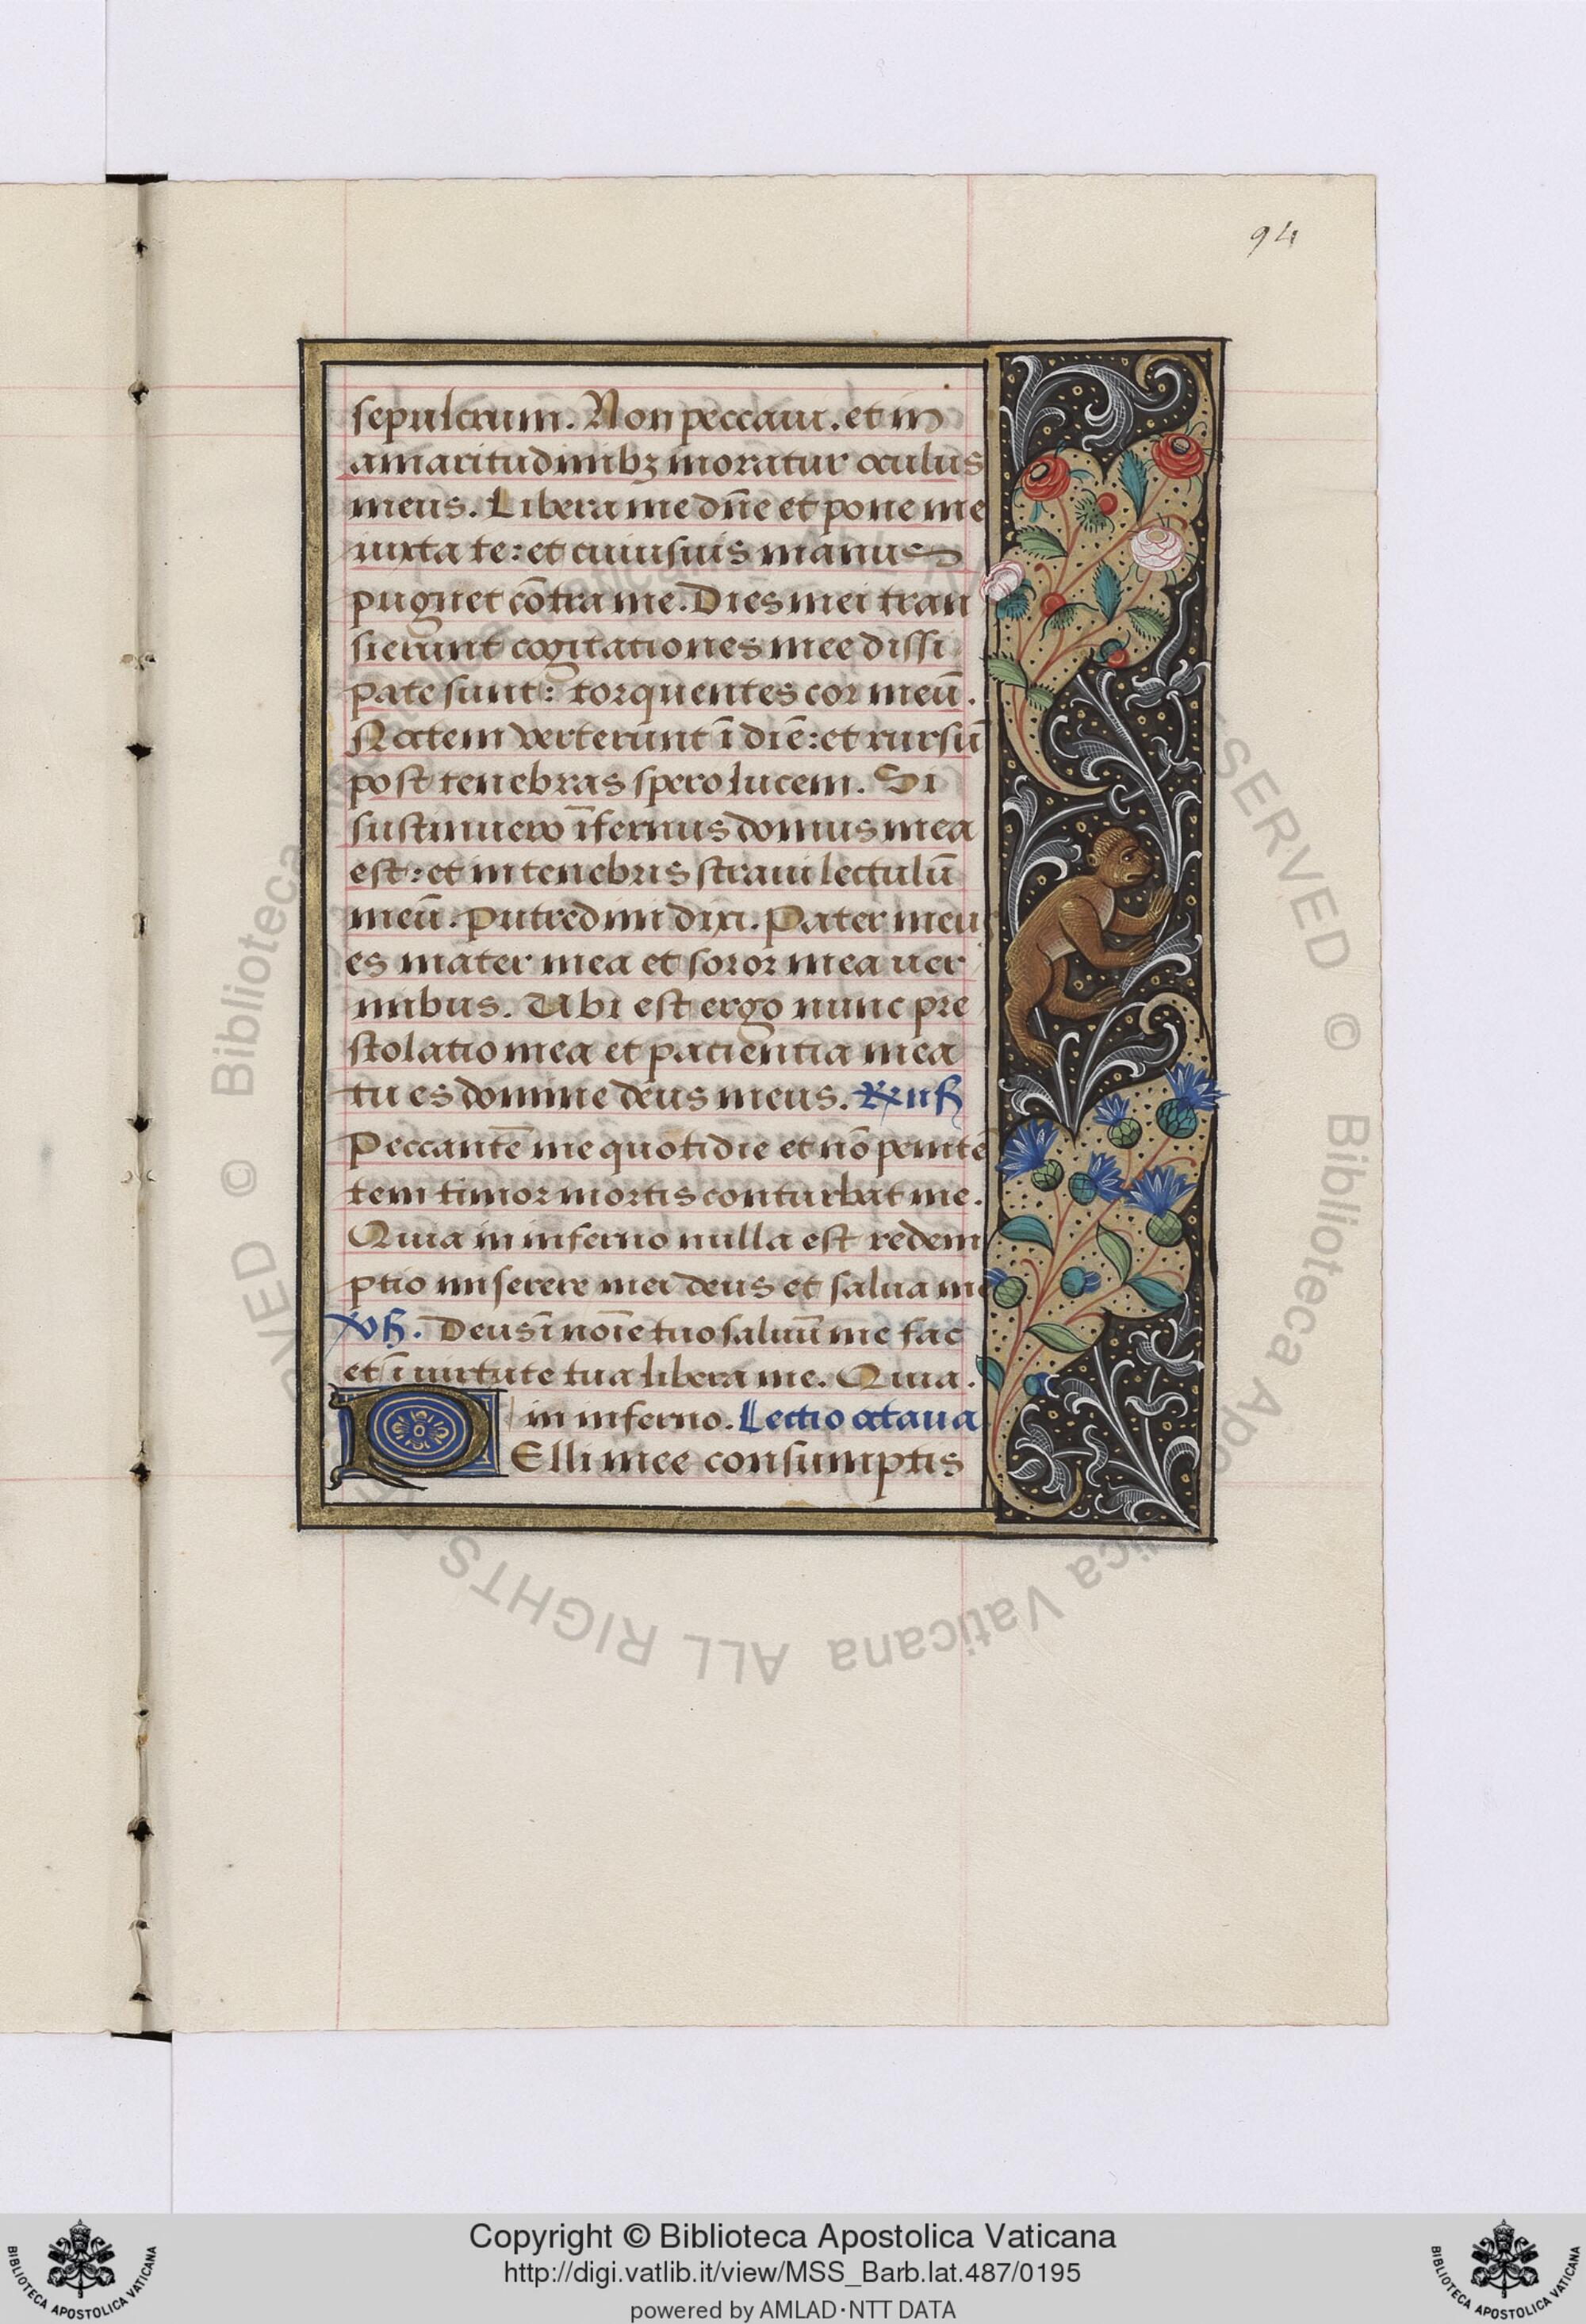 94
sepulcrum. Non peccaui. et in
amaritudinibꝫ moratur oculus
meus. Libera me dn̄e et pone me
iuxta te: et cuiusuis manus
pugnet cōtra me. Dies mei tran
sierunt cogitationes mee dissi
pate sunt: torquentes cor meū.
Noctem verterunt ī diē: et rursū
post tenebras spero lucem. Si
sustinuero īfernus domus mea
est: et in tenebris straui lectulū
meū. Putredini dixi. Pater meus
es mater mea et soror mea uer
mibus. Ubi est ergo nunc pre
stolatio mea et pacientia mea
tu es domine deus meus.
Peccantē me quotidie et nō peniten̄
tem timor mortis conturbat me.
Quia in inferno nulla est redem
ptio miserere mei deus et salua me
Deus ī noīe tuo saluū me fac
et ī uirtute tua libera me. Quia.
in inferno. Lectio octaua
PElli mee consumptis
© Biblioteca Apostolica Vaticana ALL RIGHTS RESERVED
Copyright © Biblioteca Apostolica Vaticana
http://digi.vatlib.it/view/MSS_Barb.lat.487/0195
powered by AMLAD·NTT DATA
BIBLIOTECA APOSTOLICA VATICANA
BIBLIOTECA APOSTOLICA VATICANA